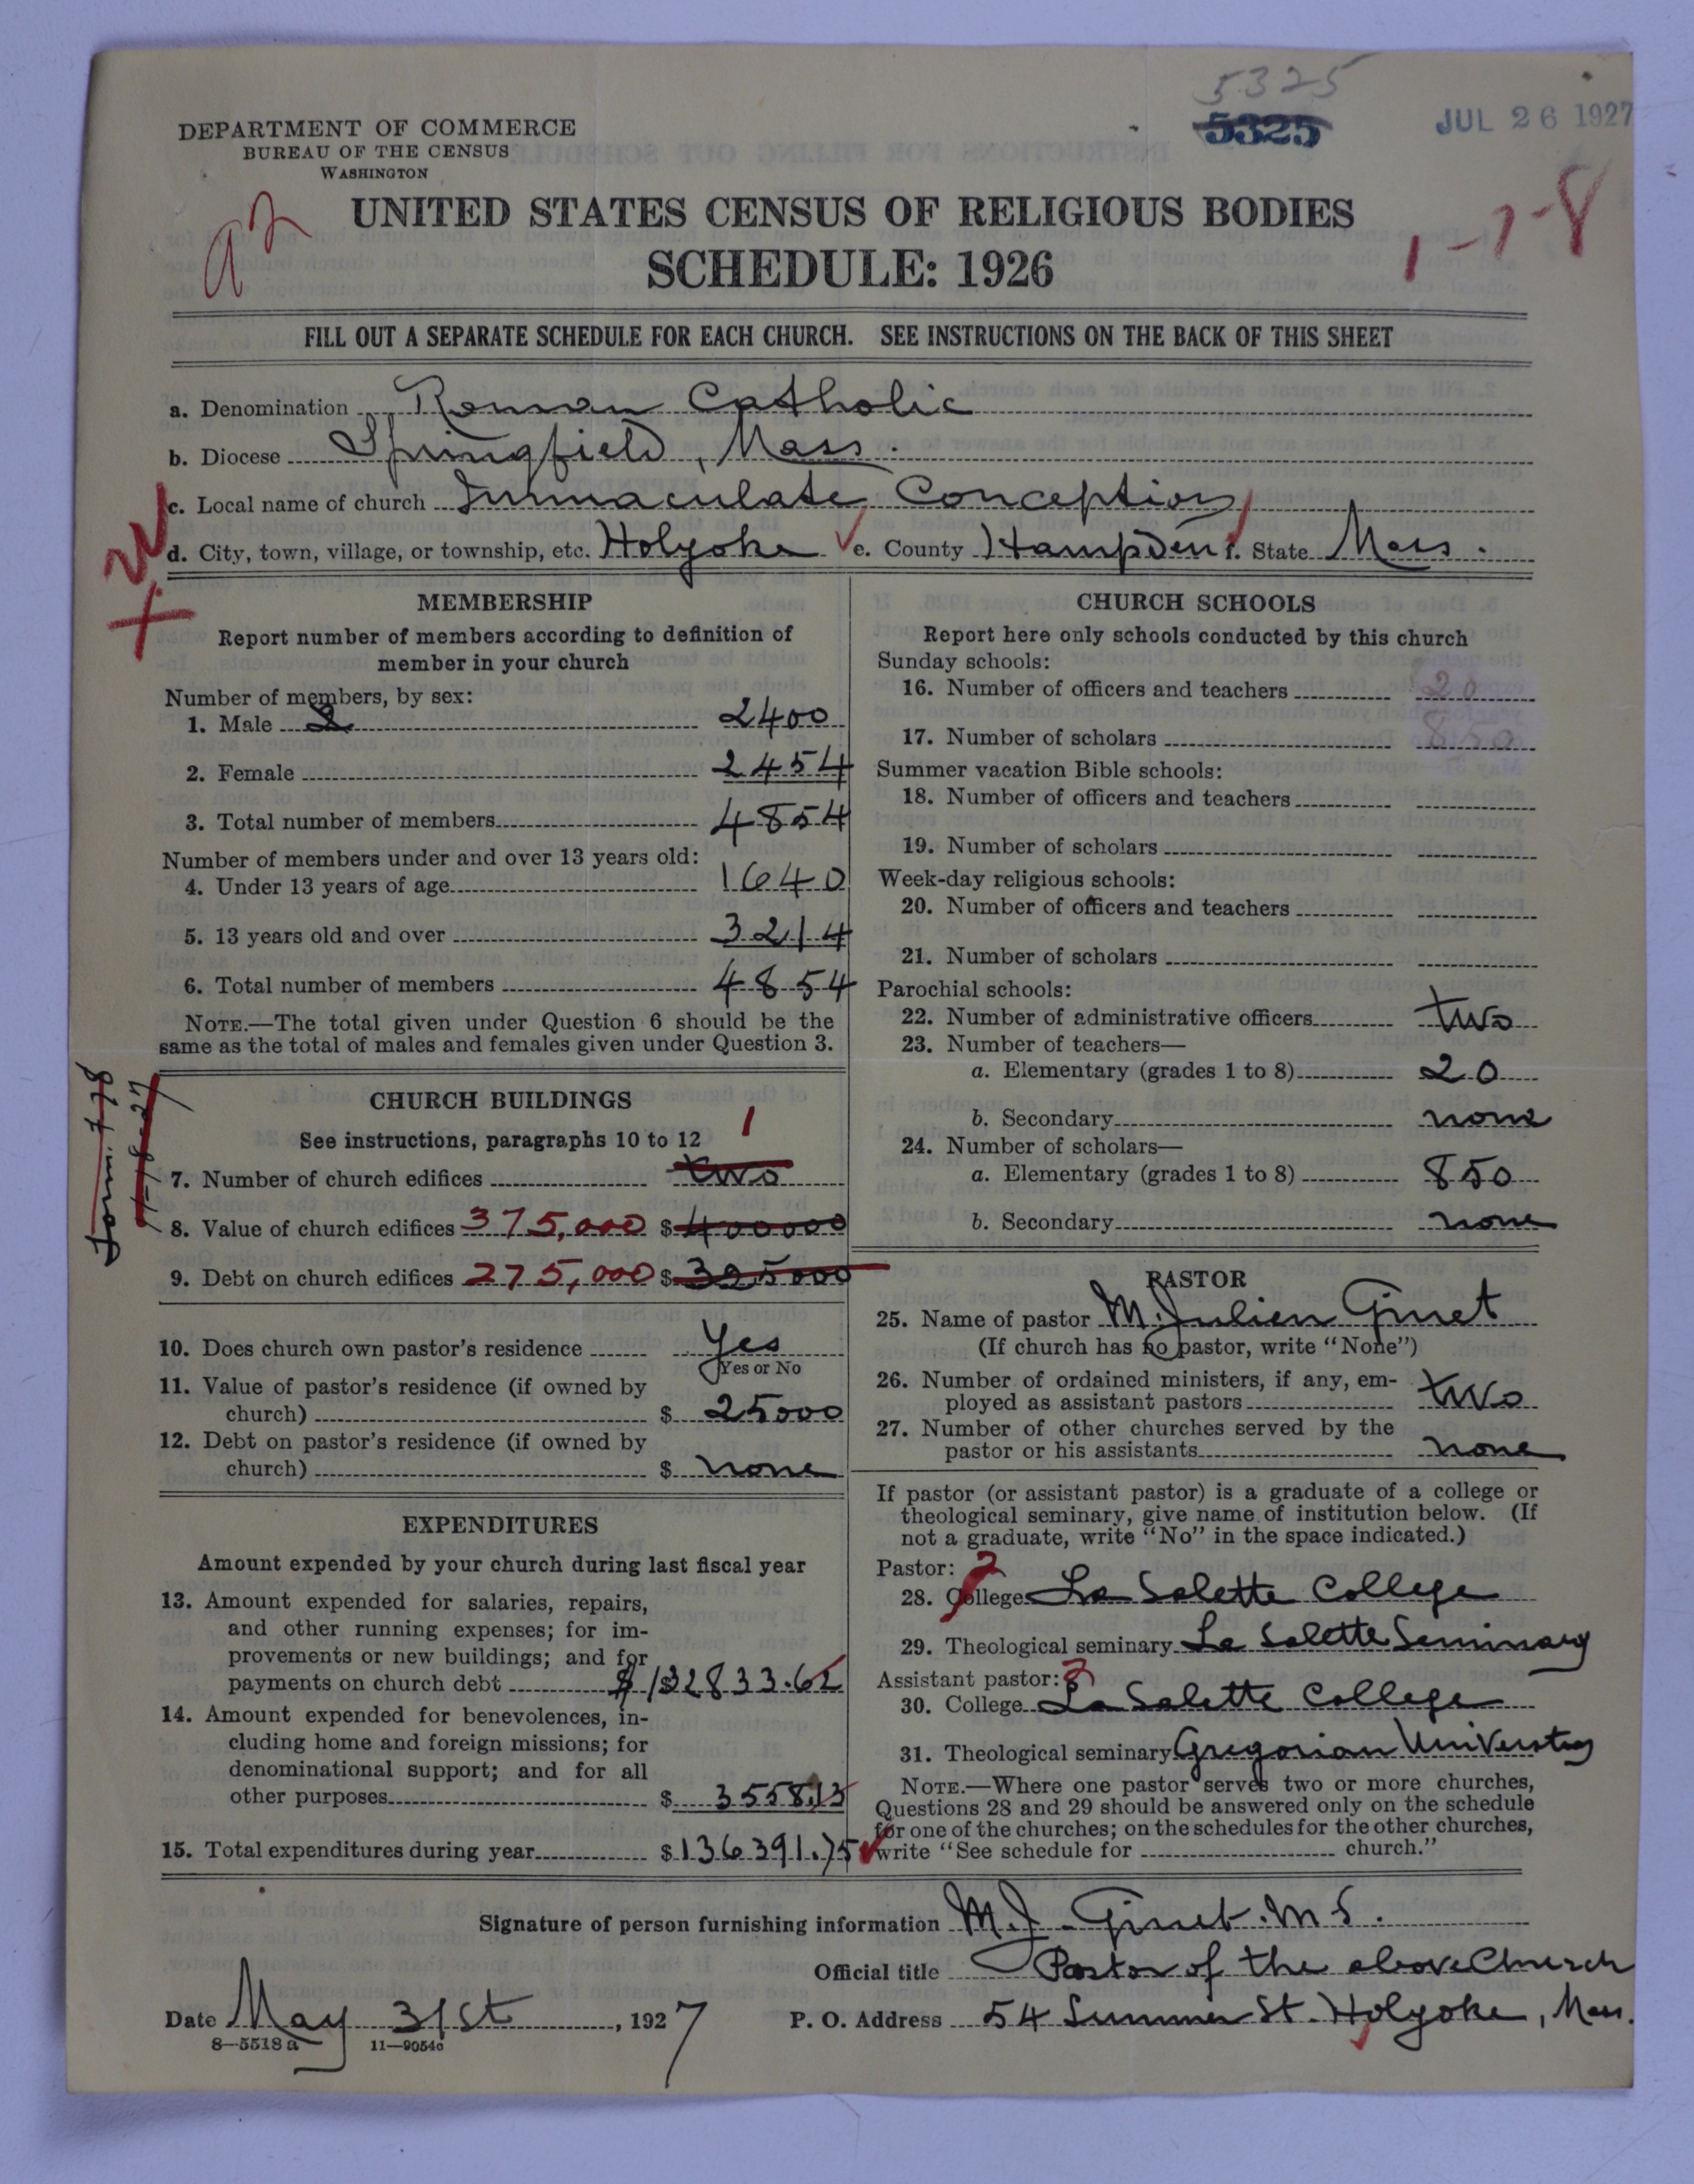 5325
5325
JUL 26 1927
DEPARTMENT OF COMMERCE
BUREAU OF THE CENSUS
WASHINGTON
a2
1-7-8
UNITED STATES CENSUS OF RELIGIOUS BODIES
SCHEDULE: 1926
FILL OUT A SEPARATE SCHEDULE FOR EACH CHURCH. SEE INSTRUCTIONS ON THE BACK OF THIS SHEET
a. Denomination Roman Catholic
b. Diocese Springfield, Mass.
c. Local name of church Immaculate Conception
d. City, town, village, or township, etc. Holyoke e. County Hampden f. State Mass.
MEMBERSHIP
Report number of members according to definition of
member in your church
Number of members, by sex:
1. Male 2400
2. Female 2454
3. Total number of members 4854
Number of members under and over 13 years old:
4. Under 13 years of age 1640
5. 13 years old and over 3214
6. Total number of members 4854
NOTE.—The total given under Question 6 should be the
same as the total of males and females given under Question 3.
CHURCH BUILDINGS
See instructions, paragraphs 10 to 12
1
7. Number of church edifices two
8. Value of church edifices 375,000 $ 400000
9. Debt on church edifices 275,000 $ 325000
10. Does church own pastor's residence Yes
Yes or No
11. Value of pastor's residence (if owned by
church) $ 25000
12. Debt on pastor's residence (if owned by
church) $ none
EXPENDITURES
Amount expended by your church during last fiscal year
13. Amount expended for salaries, repairs,
and other running expenses; for im-
provements or new buildings; and for
payments on church debt $ 132833.62
14. Amount expended for benevolences, in-
cluding home and foreign missions; for
denominational support; and for all
other purposes $ 3558.13
15. Total expenditures during year $ 136391.75
CHURCH SCHOOLS
Report here only schools conducted by this church
Sunday schools:
16. Number of officers and teachers 20
17. Number of scholars 850
Summer vacation Bible schools:
18. Number of officers and teachers
19. Number of scholars
Week-day religious schools:
20. Number of officers and teachers
21. Number of scholars
Parochial schools:
22. Number of administrative officers two
23. Number of teachers—
a. Elementary (grades 1 to 8) 20
b. Secondary none
24. Number of scholars—
a. Elementary (grades 1 to 8) 850
b. Secondary none
PASTOR
25. Name of pastor M. Julien Ginet
(If church has no pastor, write "None")
26. Number of ordained ministers, if any, em-
ployed as assistant pastors two
27. Number of other churches served by the
pastor or his assistants none
If pastor (or assistant pastor) is a graduate of a college or
theological seminary, give name of institution below. (If
not a graduate, write "No" in the space indicated.)
Pastor: 2
28. College La Salette College
29. Theological seminary La Salette Seminary
Assistant pastor:
30. College La Salette College
31. Theological seminary Gregorian University
NOTE.—Where one pastor serves two or more churches,
Questions 28 and 29 should be answered only on the schedule
for one of the churches; on the schedules for the other churches,
write "See schedule for church."
Signature of person furnishing information M. J. Ginet. M S.
Official title Pastor of the above Church
Date May 31st, 1927 P. O. Address 54 Summer St. Holyoke, Mass.
8—5518 a 11—9054a